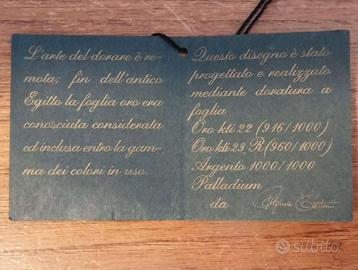 L'arte del dorare è re-
mota; fin dell'antico
Egitto la foglia oro era
conosciuta considerata
ed inclusa entro la gam-
ma dei colori in uso.
Questo disegno è stato
progettato e realizzato
mediante doratura a
foglia
Oro kti 22 (916/1000)
Oro kti 23 R (960/1000)
Argento 1000/1000
Palladium
da
subito